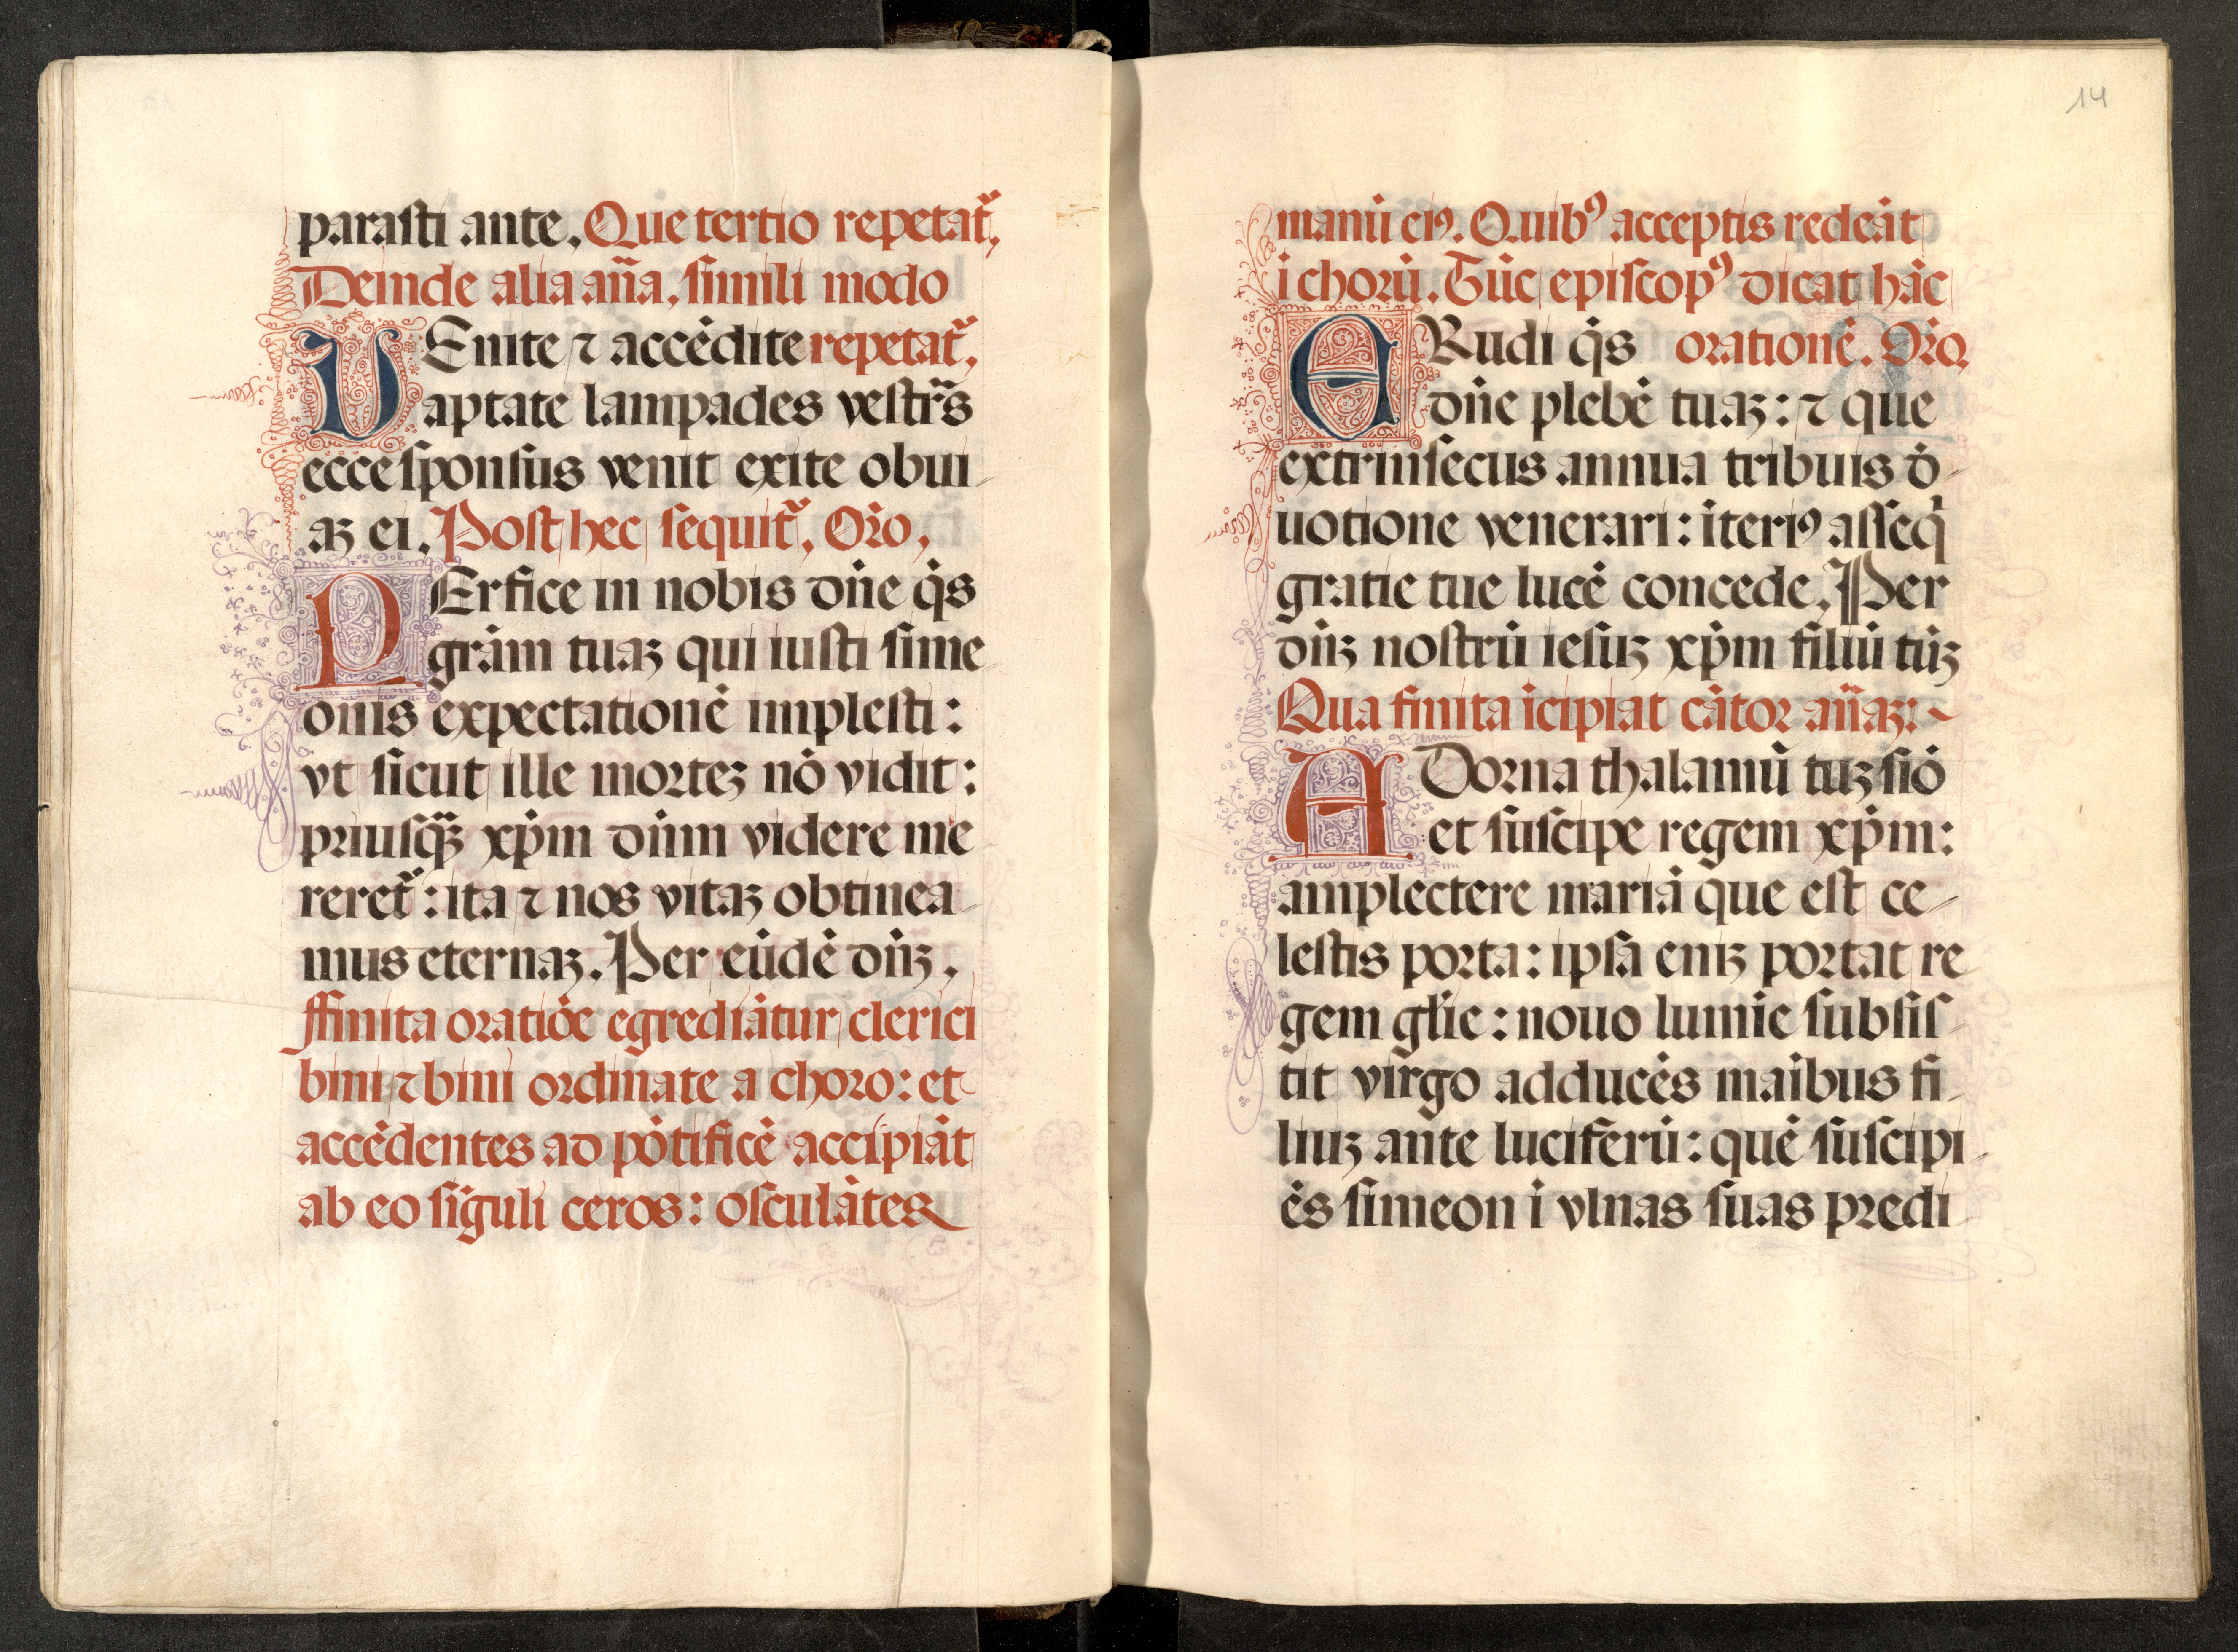 parasti ante. Que tertio repetat᷑.
Deinde alia an̄a. simili modo
VEnite ⁊ accēdite repetat᷑.
aptate lampades vestr̄s
ecce sponsus venit exite obui-
aꝫ ei. Post hec sequit᷑. Orō.
PErfice in nobis dn̄e q̄s
grām tuaꝫ qui iusti sime-
onis expectationē implesti:
vt sicut ille morteꝫ nō vidit:
priusq̄ꝫ xp̄m dn̄m videre me-
reret᷑: ita ⁊ nos vitaꝫ obtinea-
mus eternaꝫ. Per eūdē dn̄ꝫ.
ffinita oratiōe egrediātur clerici
bini ⁊ bini ordinate a choro: et
accēdentes ad pōtificē accipiāt
ab eo sīguli ceros: osculātes
14
manū eiꝰ. Quibꝰ acceptis redeāt
ī chorū. Tūc episcopꝰ dicat hāc
ERudi q̄s orationē. Orō.
dn̄e plebē tuaꝫ: ⁊ que
extrinsecus annua tribuis d̄-
uotione venerari: īteriꝰ asseq̄
gratie tue lucē concede. Per
dn̄ꝫ nostrū iesuꝫ xp̄m filiū tūꝫ
Qua finita īcipiat cātor an̄aꝫ: ~
ADorna thalamū tuꝫ siō
et suscipe regem xp̄m:
amplectere mariā que est ce-
lestis porta: ipsā eniꝫ portat re
gem gl̄ie: nouo lumīe subsis-
tit virgo adducēs maībus fi-
liuꝫ ante luciferū: quē suscipi-
ēs simeon ī vlnas suas predi-